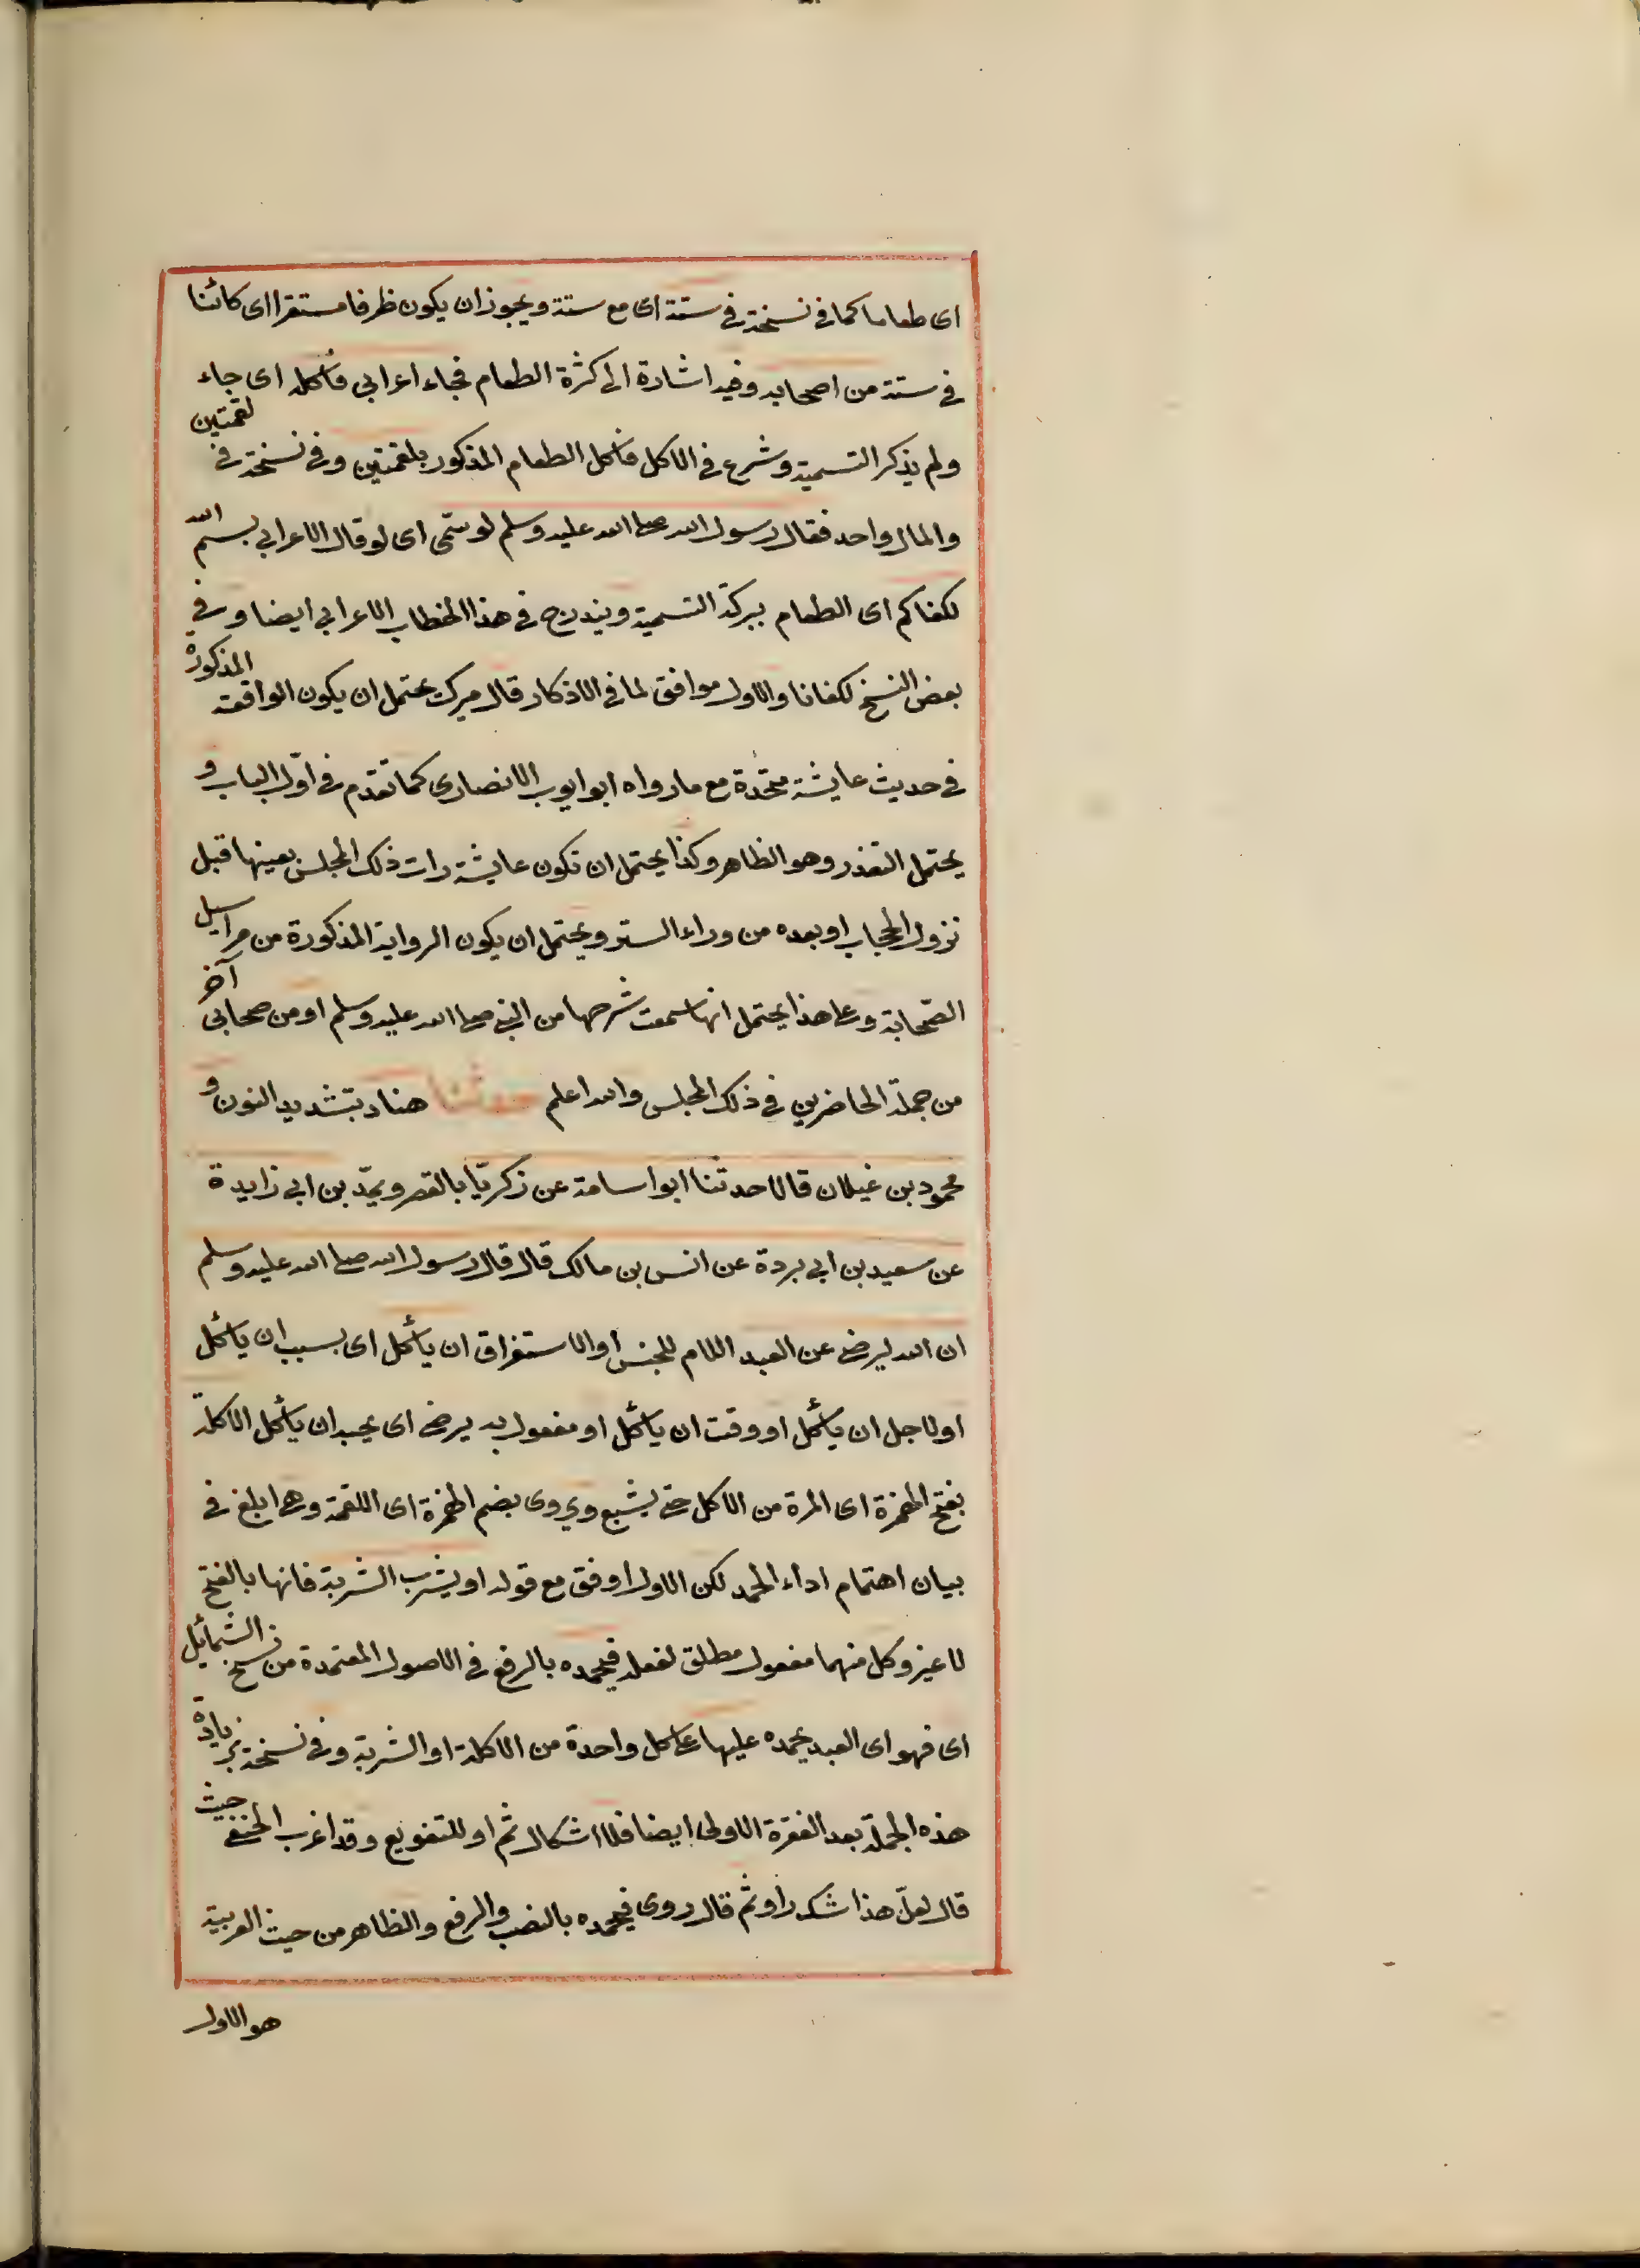 اى طعاما كما فى نسخة فى ستة اى مع ستة ويجوز ان يكون ظرفا مستقرا اى كائنا
فى ستة من اصحابه وفيه اشارة الى كثرة الطعام فجاء اعرابى فأكله اى جاء
ولم يذكر التسمية وشرع فى الاكل فأكل الطعام المذكور بلقمتين وفى نسخة فى لقمتين
والمال واحد فقال رسول الله صلى الله عليه وسلم لو سمّى اى لو قال الاعرابى بسم الله
لكفاكم اى الطعام ببركة التسمية ويندرج فى هذا الخطاب الاعرابى ايضا وفى
بعض النسخ لكفانا والاول موافق لما فى الاذكار قال ميرك يحتمل ان يكون الواقعة المذكورة
فى حديث عايشة متحدة مع ما رواه ابو ايوب الانصارى كما تقدم فى اوّل الباب و
يحتمل التعذر وهو الظاهر وكذا يحتمل ان تكون عايشة رات ذلك المجلس بعينها قبل
نزول الحجاب او بعده من وراء الستر ويحتمل ان يكون الرواية المذكورة من مراسيل
الصّحابة وعلى هذا يحتمل انها سمعت شرحها من النبى صلى الله عليه وسلم او من صحابى آخر
من جملة الحاضرين فى ذلك المجلس والله اعلم حدثنا هناد بتشديد النون و
محمود بن غيلان قالا حدثنا ابو اسامة عن زكريّا بالقصر ويمدّ بن ابى زايدة
عن سعيد بن ابى بردة عن انس بن مالك قال قال رسول الله صلى الله عليه وسلم
ان الله ليرضى عن العبد اللام للجنس او الاستغراق ان يأكل اى بسبب ان يأكل
او لاجل ان يأكل او وقت ان يأكل او مفعول به يرضى اى يحب ان يأكل الاكلة
بفتح الهمزة اى المرة من الاكل حتى يشبع ويروى بضم الهمزة اى اللقمة وهى ابلغ فى
بيان اهتمام اداء الحمد لكن الاول اوفق مع قوله او يشرب الشربة فانها بالفتح
لا غير وكل منهما مفعول مطلق لفعله فيحمده بالرفع فى الاصول المعتمدة من نسخ الشمايل
اى فهو اى العبد يحمده عليها على كل واحدة من الاكلة او الشربة وفى نسخة بزيادة
هذه الجملة بعد الفقرة الاولى ايضا فلا اشكال ثم او للتنويع وقد اغرب الحنفى حيث
قال لعلّ هذا شك راو ثم قال روى فيحمده بالنصب والرفع والظاهر من حيث العربية
هو الاول